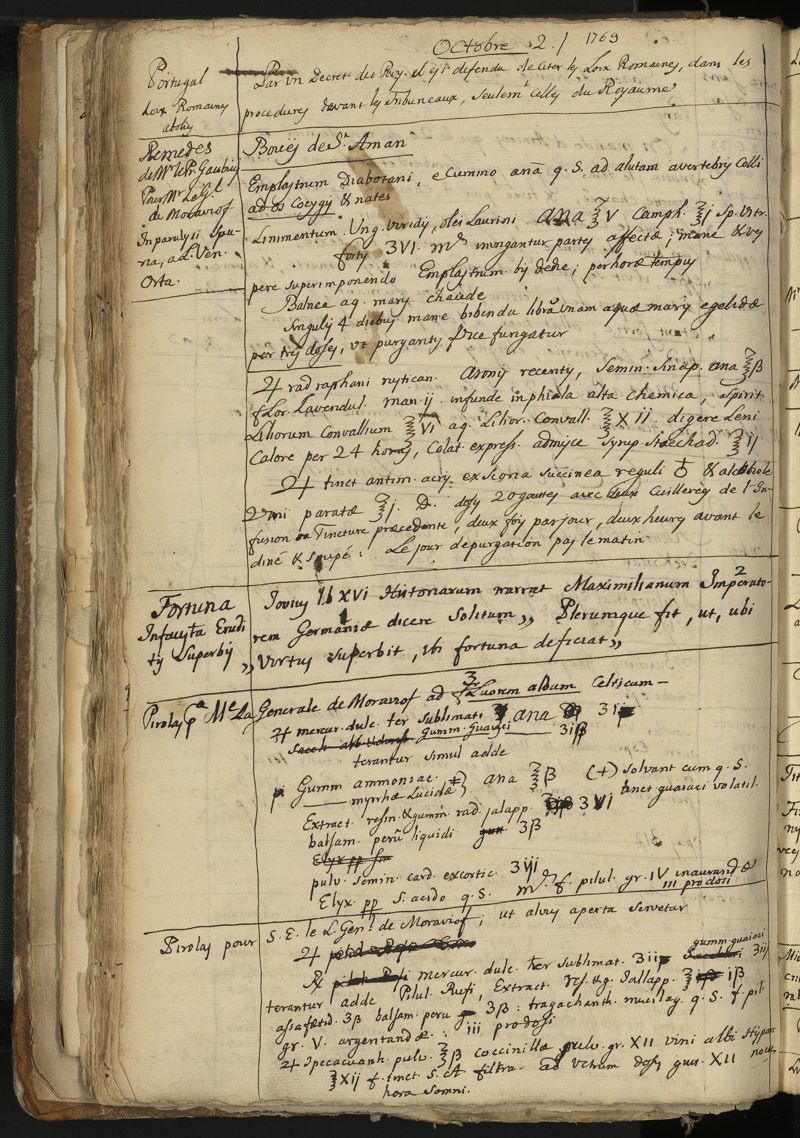 Octobre 2. / 1769
Portugal
Loix Romaines
abolies
Par un Decret du Roy. il est defendu de citer les Loix Romaines, dans les
procedures devant les Tribuneaux, seulemt celles du Royaume
Remedes
de Mr le Pr. Gaubius
Pour Mr Le Gl.
de Moraviof
In paralysi Spu-
ria, a L. Ven.
Orta.
Bouës de St. Aman
Emplastrum Diabotani, e Cummo anā q. S. ad alutam a vertebris Colli
ad os Cocygis & nates
Linimentum. Ung. Viridis, olei Laurini ana ℥V Camph. ℥j Sp. Vitr.
fortis ʒVI. m. inungantur partes affectæ; mane & ves
pere superimponendo Emplastrum. bis de die; per horæ tempus
Balnea aq. maris chaude
Singulis 4 diebus mane bibenda libra unam aquæ maris egelidæ
per tres doses, ut purgantis vice fungatur
♃ rad raphani rustican. Arony recentis, Semin. Sinap. ana ℥ß
flor. Lavendul. man. ij. infunde in phiala alta chemica, Spirit
Liliorum Convallium ℥VI aq. Lilior. Convall. ℥XII. digere Leni
Calore per 24 horas, Colat. express. admisce Syrup. Stæchad. ℥ij
♃ tinct antim. acris. ex scoria succinea reguli ♁ & alcohole
Vini paratæ ℥j. D. dosis 20 gouttes avec deux Cuillerées de l'In-
fusion ou Tincture præcedente, deux fois par jour, deux heures avant le
diné & soupé. Le jour de purgation pas le matin
Fortuna
Infausta Erudi
tis Superbis
Jovius lb XVI Historiarum narrat Maximilianum Imperato-
rem Germaniæ dicere Solitum „ Plerumque fit, ut, ubi
„ Virtus superbit, ibi fortuna deficiat „
Pirolas pa Me La Generale de Moraviof ad fluorem album Celticum —
♃ mercur. dulc. ter Sublimati ana ʒi
Gumm. Guajaci ʒiß
terantur simul adde
Gumm ammoniac.
myrrhæ Lucidæ } ana ℥ß (+) Solvant cum q. S.
tinct guaiaci volatil.
Extract. resin. & gumm. rad. jalapp. ʒVI
balsam. peru liquidi ʒß
pulv. Semin. card. excortic. ʒVij
Elyx. pp S. acido q. S. m. f. pilul. gr. IV inaurandæ
iii pro dosi
Pirolas pour S. E. le L. Genl. de Moraviof; ut alvus aperta servetur
♃
℞ mercur. dulc. ter Sublimat. ʒii gumm. guaiaci ʒij
terantur adde Pilul. Rufi, Extract. res. & g. Jallapp. iß
assafætid. ʒß balsam. peru ʒß: tragachanth. mucilag. q. S. f. pil.
gr. V. argentandæ. iii pro dosi
♃ Ipecacuanh. pulv. ℥ß coccinillæ pulv. gr. XII vini albi Hispan
℥Xij f. tinct. S. A filtra. ad vitrum dosis gutt. XII noctis
hora Somni.